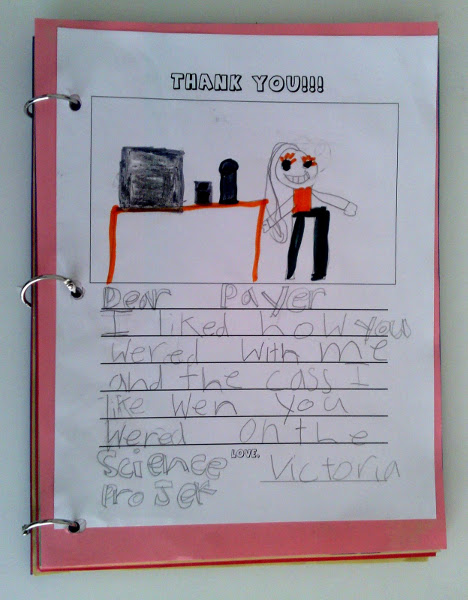 THANK YOU!!!
Dear Payer
I liked how you
wered with me
and the cass I
like wen you
wered on the
LOVE,
Science Victoria
Projek